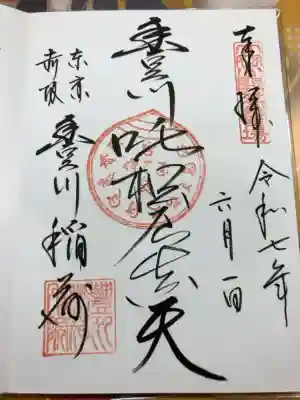 奉拝
令和七年
六月一日
豊川
吒枳尼真天
東京
赤坂
豊川稲荷